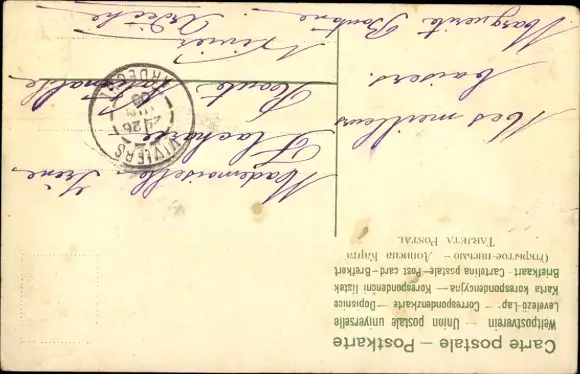 Carte postale – Postkarte
Weltpostverein — Union postale universelle
Levelező-Lap — Correspondenzkarte — Dopisnice
Karta korespondencyjna — Korespondenční listek
Briefkaart — Cartolina postale — Post card — Brefkort
Открытое письмо — Дописна Карта
TARJETA POSTAL
Mes meilleurs
baisers.
Marguerite
Mademoiselle Irène
Route Nationale
Viviers
Ardèche
VIVIERS
ARDECHE